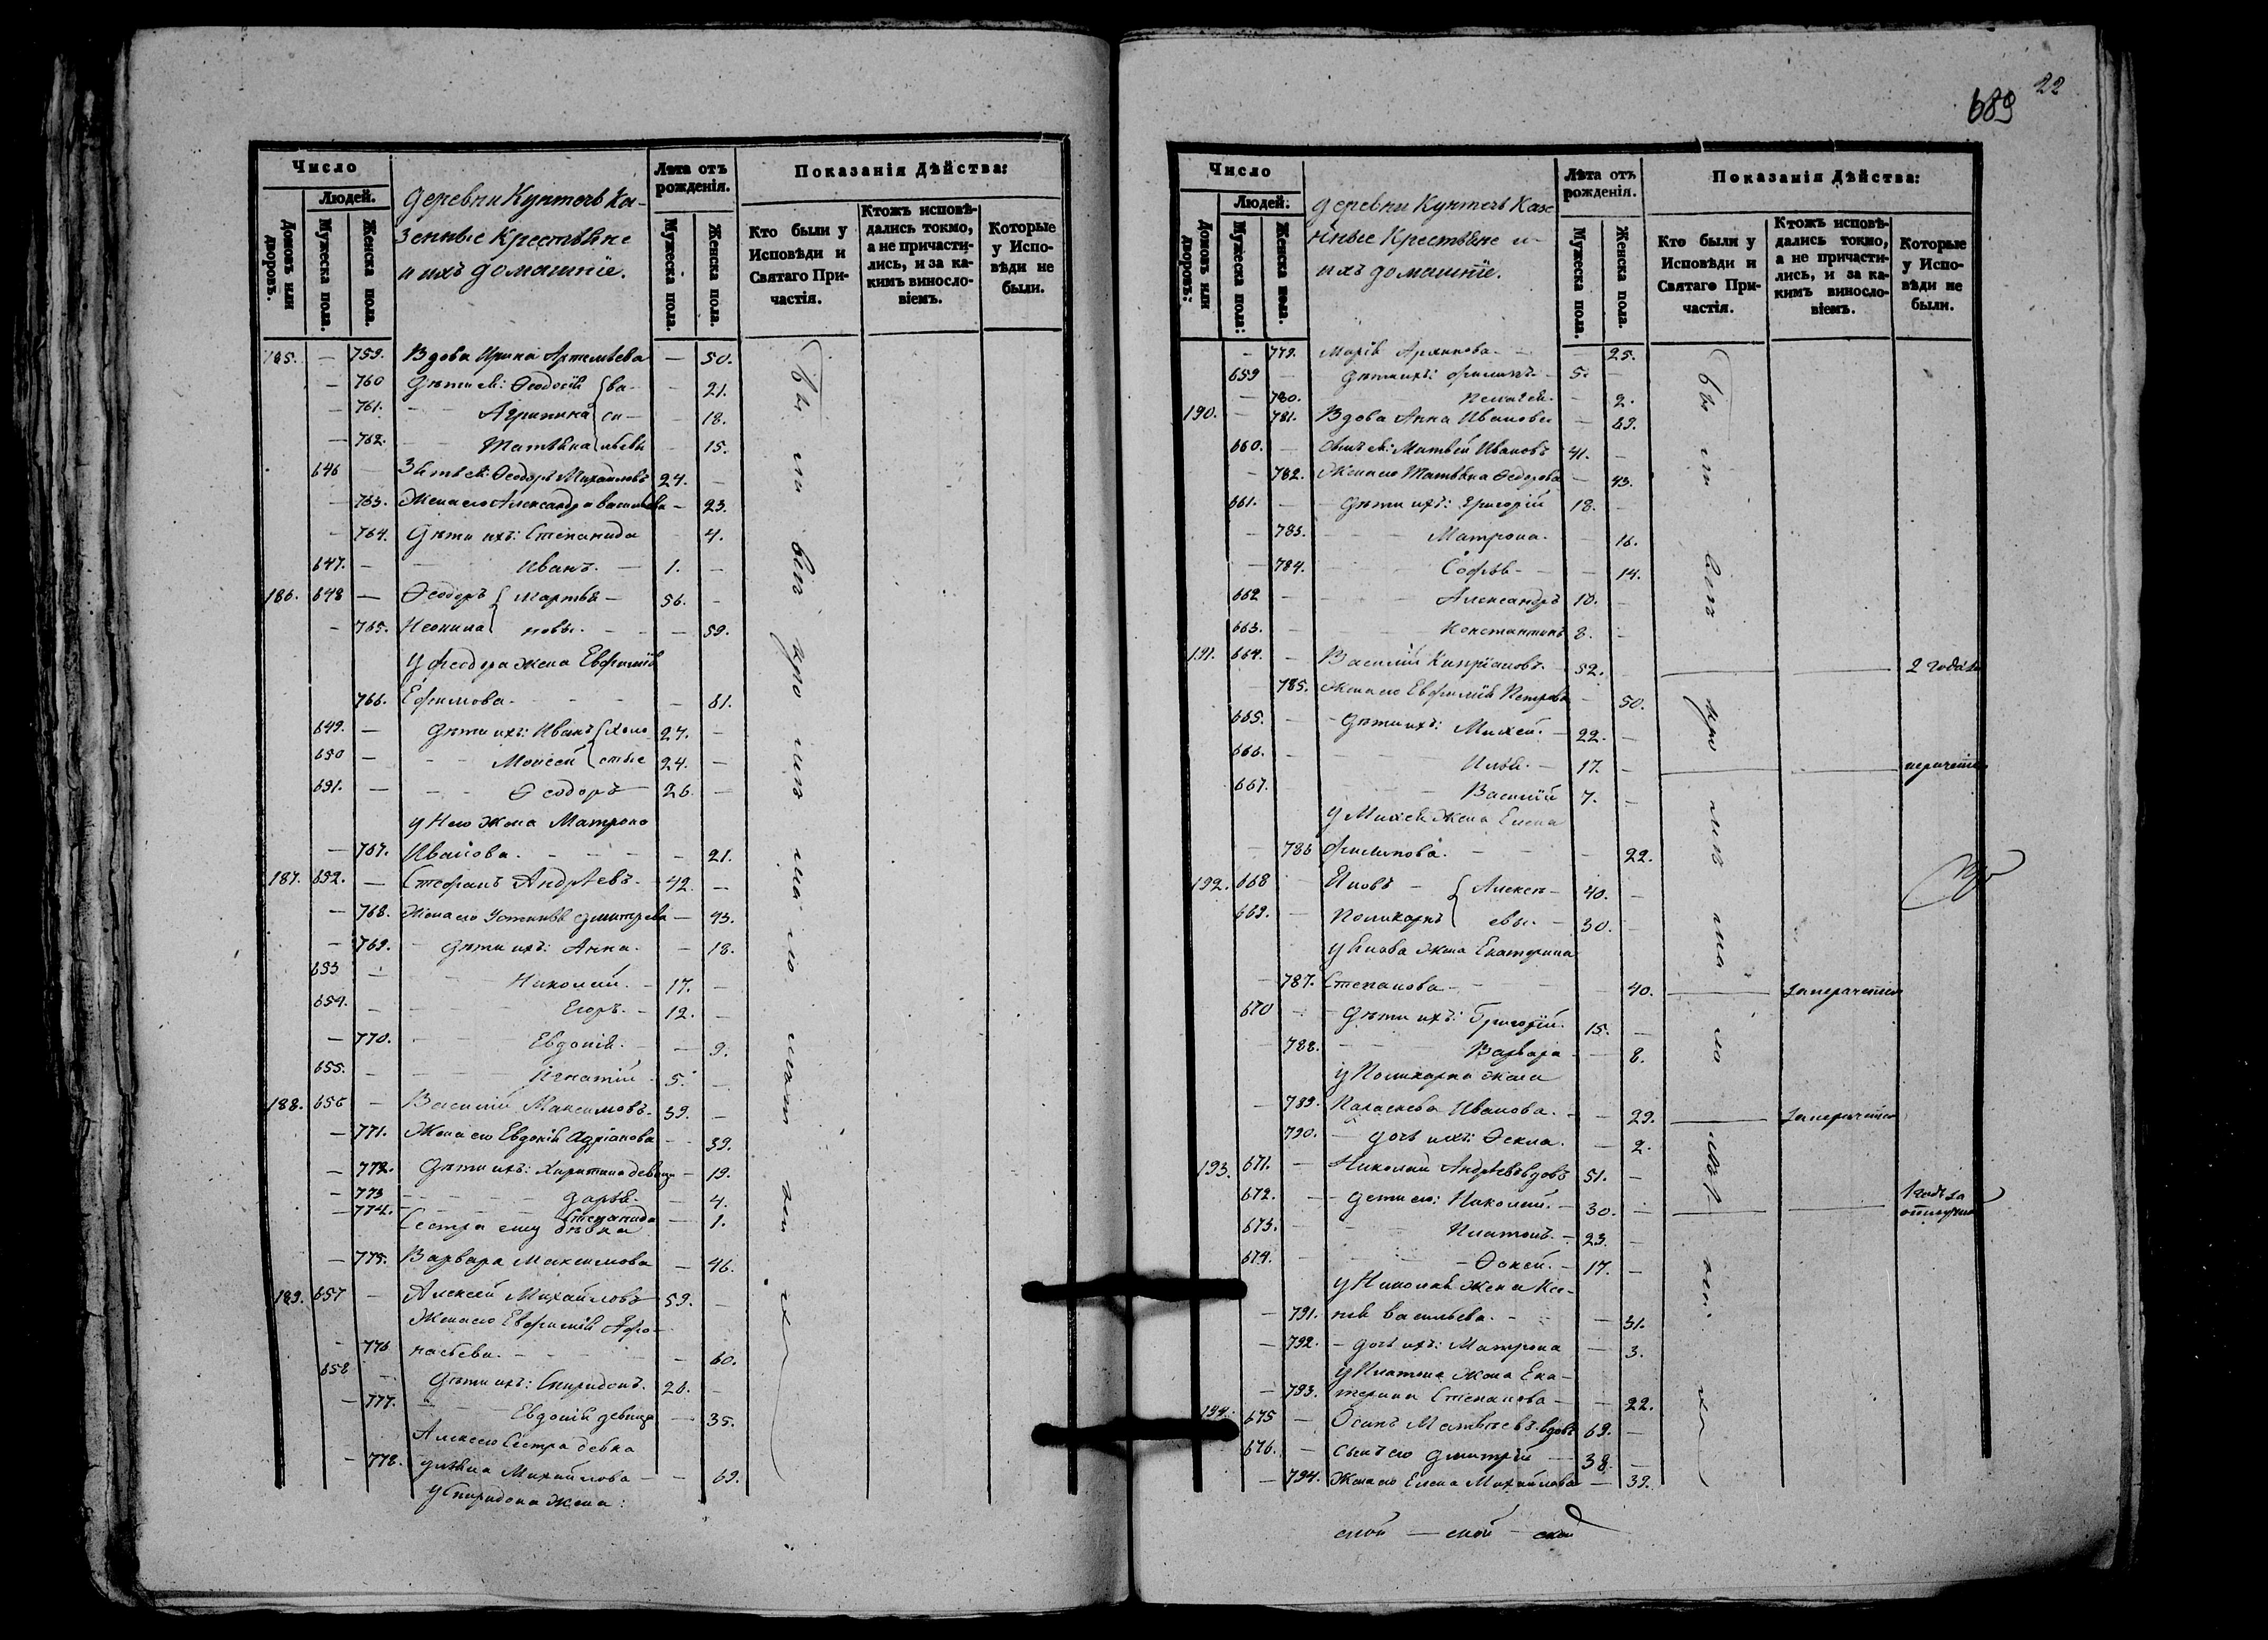 Число
Людей.
Домовъ или дворовъ.
Мужеска пола.
Женска пола.
деревни Кунтечь Ка-
зенные Крестьяне
и ихъ домашніе.
Лѣта отъ рожденія.
Мужеска пола.
Женска пола.
Показанія Дѣйства:
Кто были у Исповѣди и Святаго Причастія.
Ктожъ исповѣдались токмо, а не причастились, и за какимъ винословіемъ.
Которые у Исповѣди не были.
185. — 759. Вдова Ирина Артемьева — 50.
— 760 Дѣти ея: Ѳеодосія { ва- — 21.
— 761. Агрипина { си- — 18.
— 762. Татьяна { льевы — 15.
646 — Зять ея: Ѳеодоръ Михайловъ 24. —
— 763. Жена его Александра Васильева — 23.
— 764. Дѣти ихъ: Степанида 4.
647. — Иванъ. — 1. —
186. 648 — Ѳеодоръ { Мартья- 56. —
— 765. Неонила { новы. — 59.
у Феодора жена Евфимія
766. Ефимова. — 61.
649. — Дѣти ихъ: Иванъ { холо- 27. —
650 — Моисей { стые 24. —
651. — Ѳеодоръ 26. —
у Него жена Матрона
— 767. Иванова. — 21.
187. 652. — Стефанъ Андрѣевъ. 42. —
— 768. Жена его Устинья Дмитрева — 43.
— 769. Дѣти ихъ: Анна. — 18.
653 — Николай. — 17. —
654. — Егоръ. — 12. —
— 770. Евдокія. — 9.
655. — Игнатій 5. —
188. 656 — Василій Максимовъ. 39. —
— 771. Жена его Евдокія Адріанова — 39.
— 772. Дѣти ихъ: Харитина девица — 19.
— 773 Дарья. — 4.
— 774. Степанида — 1.
Сестра ему дѣвка
— 775. Варвара Максимова — 46.
189. 657 — Алексѣй Михайловъ 59. —
Жена его Евфимія Афо-
— 776 насьева. — 60.
658 — Дѣти ихъ: Спиридонъ. 26. —
— 777. Евдокія девица — 35.
Алексею Сестра девка
— 778. Ульяна Михайлова — 69.
у Спиридона Жена:
689
22
Число
Людей:
Домовъ или дворовъ:
Мужеска пола:
Женска пола.
деревни Кунтечь Казе
нные Крестьяне и
ихъ домашніе.
Лѣта отъ рожденія.
Мужеска пола.
Женска пола.
Показанія Дѣйства:
Кто были у Исповѣди и Святаго Причастія.
Ктожъ исповѣдались токмо, а не причастились, и за какимъ винословіемъ.
Которые у Исповѣди не были.
— 779. Марія — 25.
659 — Дѣти ихъ: Филипъ. 5. —
— 780. Пелагея. — 2.
190. — 781. Вдова Анна Иванова — 69.
660. — Сынъ ея: Матвѣй Ивановъ 41. —
— 782. Жена его Татьяна Ѳедорова — 43.
661. — Дѣти ихъ: Григорій 18. —
— 783. Матрона. — 16.
— 784. Софья — 14.
662 — Александръ 10. —
663. — Константинъ 8. —
191. 664. — Василій Кипріановъ. 52. — 2 года
— 785. Жена его Евфимія Петрова — 50.
665. — Дѣти ихъ: Михей. — 22. —
666. — Илья. — 17. —
667. — Василій 7. —
у Михея Жена Елена
— 786 Филипова. — 22.
192. 668 Иовъ — { Алексѣ- 40. —
669. — Поликарпъ { евы. — 30. —
у Иова жена Екатерина
— 787. Степанова — 40.
670 — Дѣти ихъ: Григорій. 15. —
— 788. Варвара — 8.
у Поликарпа жена
— 789. Параскева Иванова. — 29.
790. — дочь ихъ: Ѳекла. — 2.
193. 671. — Николай Андрѣевъ вдовъ 51. —
672. — Дети его: Николай. — 30. —
673. — Платонъ. — 23. —
674. — Ѳокей. — 17. —
у Николая Жена Ксе-
— 791. нія Васильева. — 31.
— 792. — дочь ихъ: Матрона — 3.
у Платона жена Ека-
— 793. терина Степанова — 22.
194. 675 — Осипъ Матвѣевъ. вдовъ 69. —
676. — Сынъ его Дмитрій 38. —
— 794. Жена его Елена Михайлова — 39.